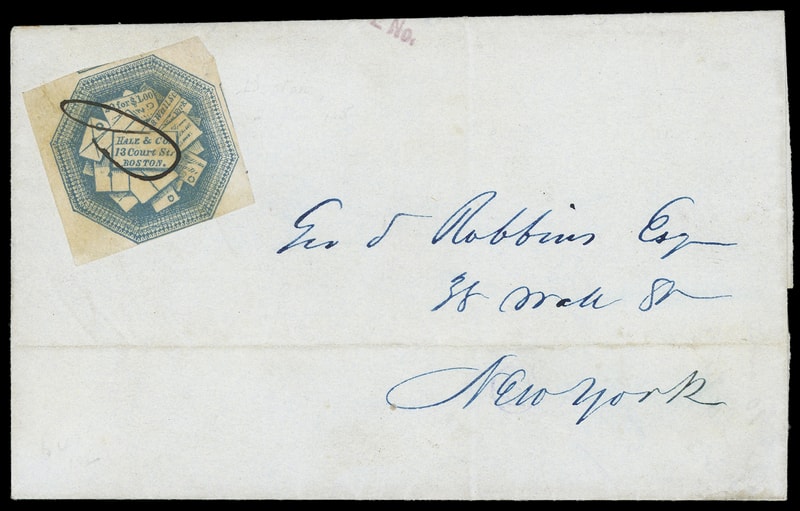 E No.
20 for $1.00
HALE & Co
13 Court St.
BOSTON.
Geo S Robbins Esq
38 Wall St
New York